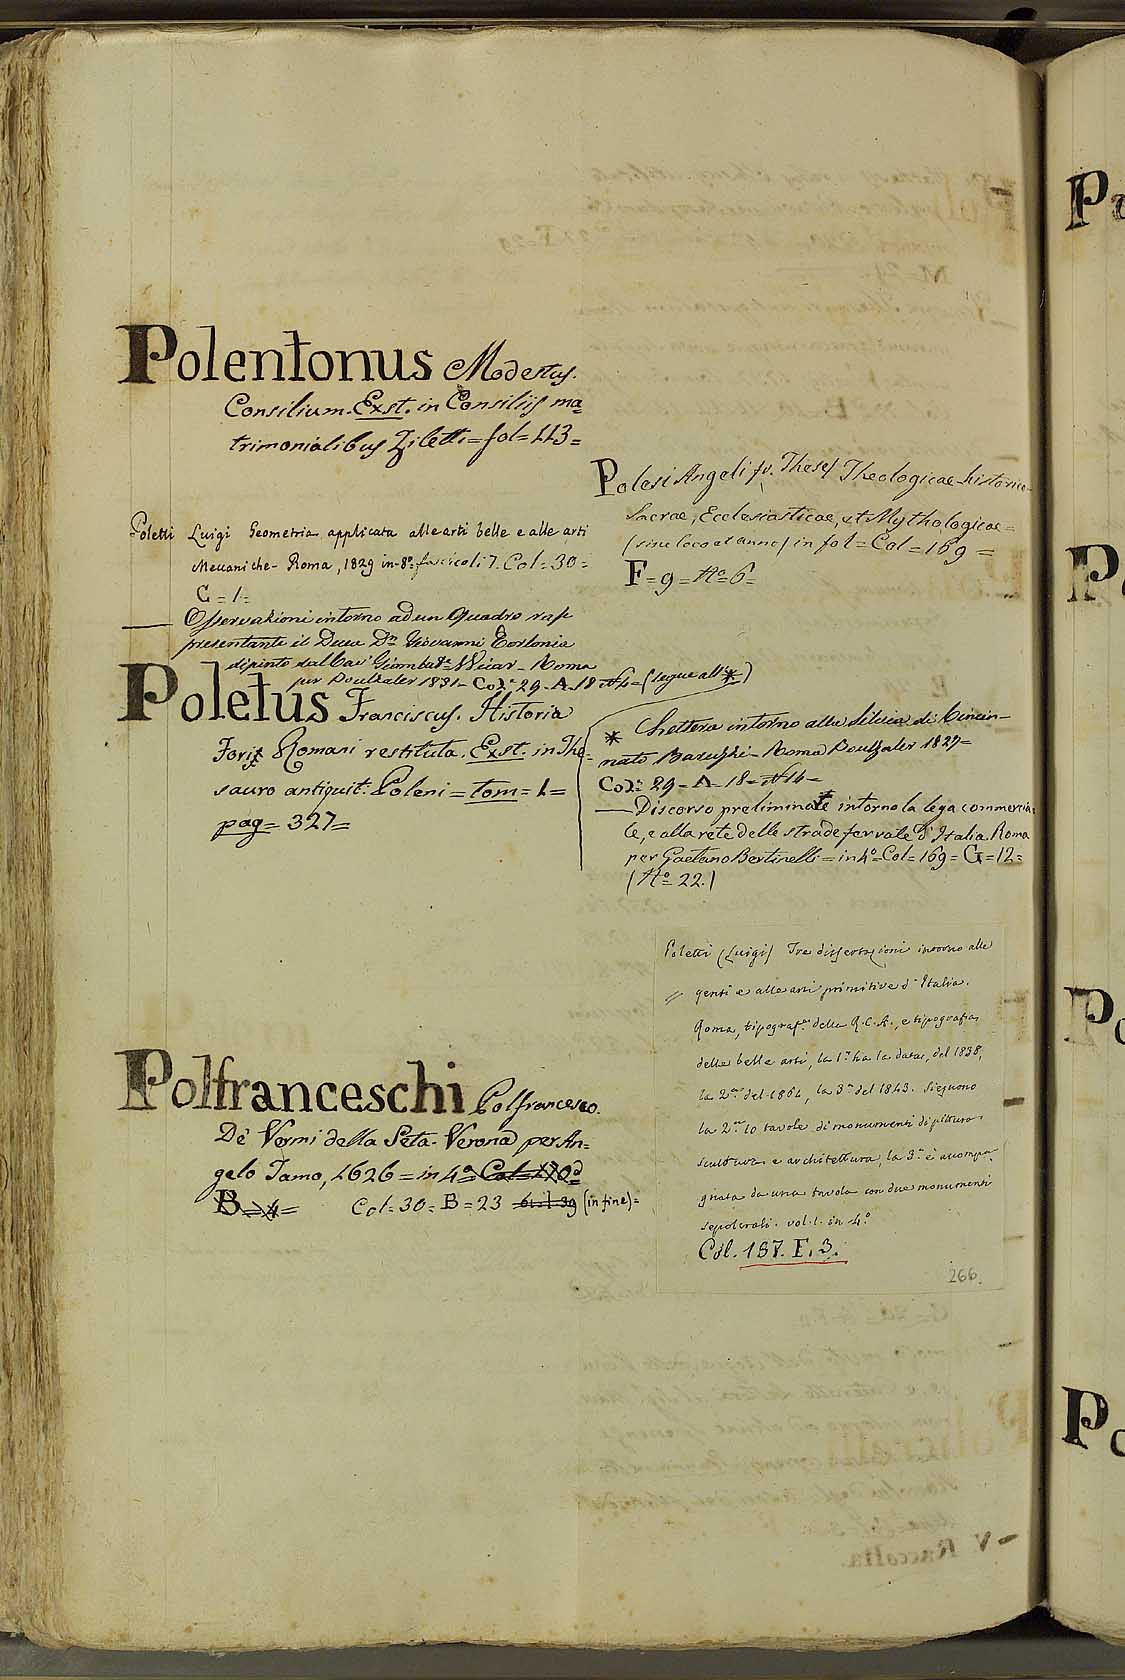 Polentonus Modestus.
Consilium. Exst. in Consiliis ma=
trimonialibus Ziletti = fol = 113 =
Poletti Luigi Geometria applicata alle arti belle e alle arti
Meccaniche - Roma, 1829 in-8º fascicoli 7. Col = 30 =
G = 1 =
— Osservazioni intorno ad un Quadro rap
presentante il Duca Dn Giovanni Torlonia
dipinto dal Cav. Giambatta Wicar - Roma
per Poulzaler 1831 - Col: 29 - A - 18 - Nº 4 = (segue all' *)
Poletus Franciscus. Historia
Fori Romani restituta. Exst. in The=
sauro antiquit: Poleni = tom = 1 =
pag = 327 =
Polfranceschi Polfrancesco.
De' Vermi della Seta. Verona per An=
gelo Tamo, 1626 = in 4º Col = 170
B = 4 = Col = 30 = B = 23 (in fine) =
Polesi Angeli fr. Theses Theologicae-historico
Sacrae, Ecclesiasticae, et Mythologicae =
(sine loco et anno) in fol = Col = 169 =
F = 9 = Nº 6 =
* Lettera intorno alla Silvia di Cincin-
nato Baruzzi - Roma Poulzaler 1827 =
Col: 29 - A - 18 - Nº 14 -
— Discorso preliminare intorno la lega commercia=
le, e alla rete delle strade ferrate d'Italia. Roma
per Gaetano Bertinelli = in 4º = Col = 169 = G = 12 =
(Nº 22.)
Poletti (Luigi) Tre dissertazioni intorno alle
genti e alle arti primitive d'Italia.
Roma, tipograf.a della R.C.A., e tipografia
delle belle arti, la 1.a ha la data, del 1838,
la 2.a del 1864, la 3.a del 1843. Sieguono
la 2.a 10 tavole di monumenti di pittura
scultura e architettura, la 3.a è accompa-
gnata da una tavola con due monumenti
sepolcrali. vol. 1. in 4.º
Col. 187. F. 3.
266.